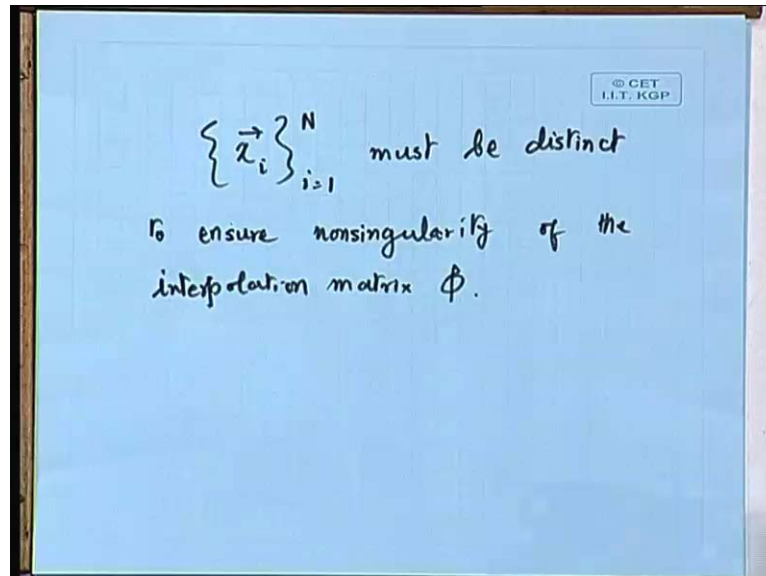 © CET
I.I.T. KGP
{x⃗ᵢ}ᴺᵢ₌₁ must be distinct
to ensure nonsingularity of the
interpolation matrix ϕ.